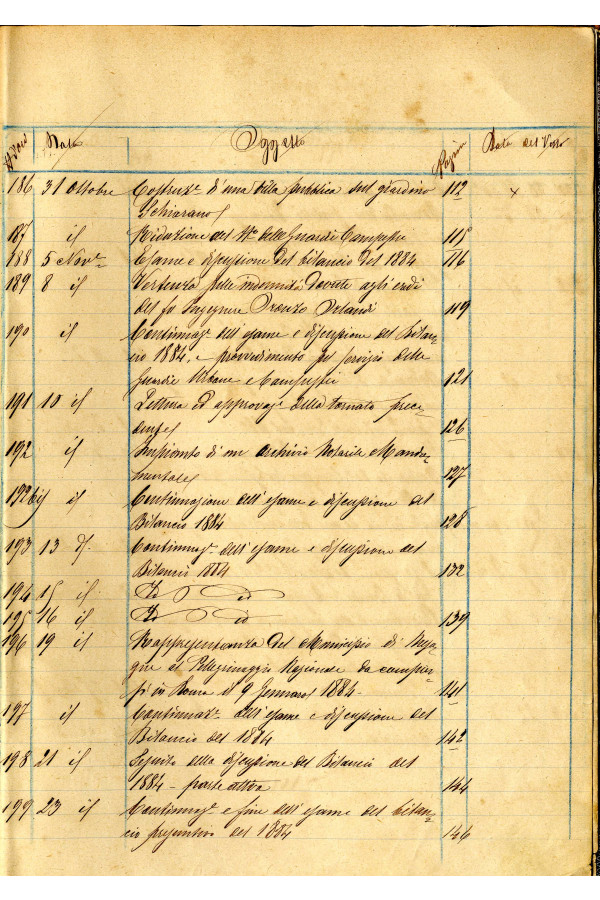 N. d'ord. Data Oggetto Pagina Data del Visto
186 31 Ottobre Costruz.e d'una villa pubblica sul giardino 112 x
Schiarano
187 id Riduzione del N.o delle Guardie Campestri 115
188 5 Nov.e Esame e discussione del bilancio del 1884 116
189 8 id Vertenza sulle indennità dovute agli eredi
del fu Ingegnere Oronzo Orlandi 119
190 id Continuaz.e dell'esame e discussione del Bilan-
cio 1884, e provvedimento pel servizio delle
Guardie Urbane e Campestri 121
191 10 id Lettura ed approvaz.e della tornata prece-
dente 126
192 id Impianto di un archivio Notarile Manda-
mentale 127
192bis id Continuazione dell'esame e discussione del
Bilancio 1884 128
193 13 d.o Continuaz.e dell'esame e discussione del
Bilancio 1884 132
194 15 id Id id
195 16 id Id id 139
196 19 id Rappresentanza del Municipio di
al Pellegrinaggio Nazionale da compier-
si in Roma il 9 Gennaro 1884 - 141
197 id Continuaz.e dell'esame e discussione del
Bilancio del 1884 142
198 21 id Seguito della discussione del Bilancio del
1884 - parte attiva 144
199 23 id Continuaz.e e fine dell'esame del bilan-
cio presuntivo del 1884 146